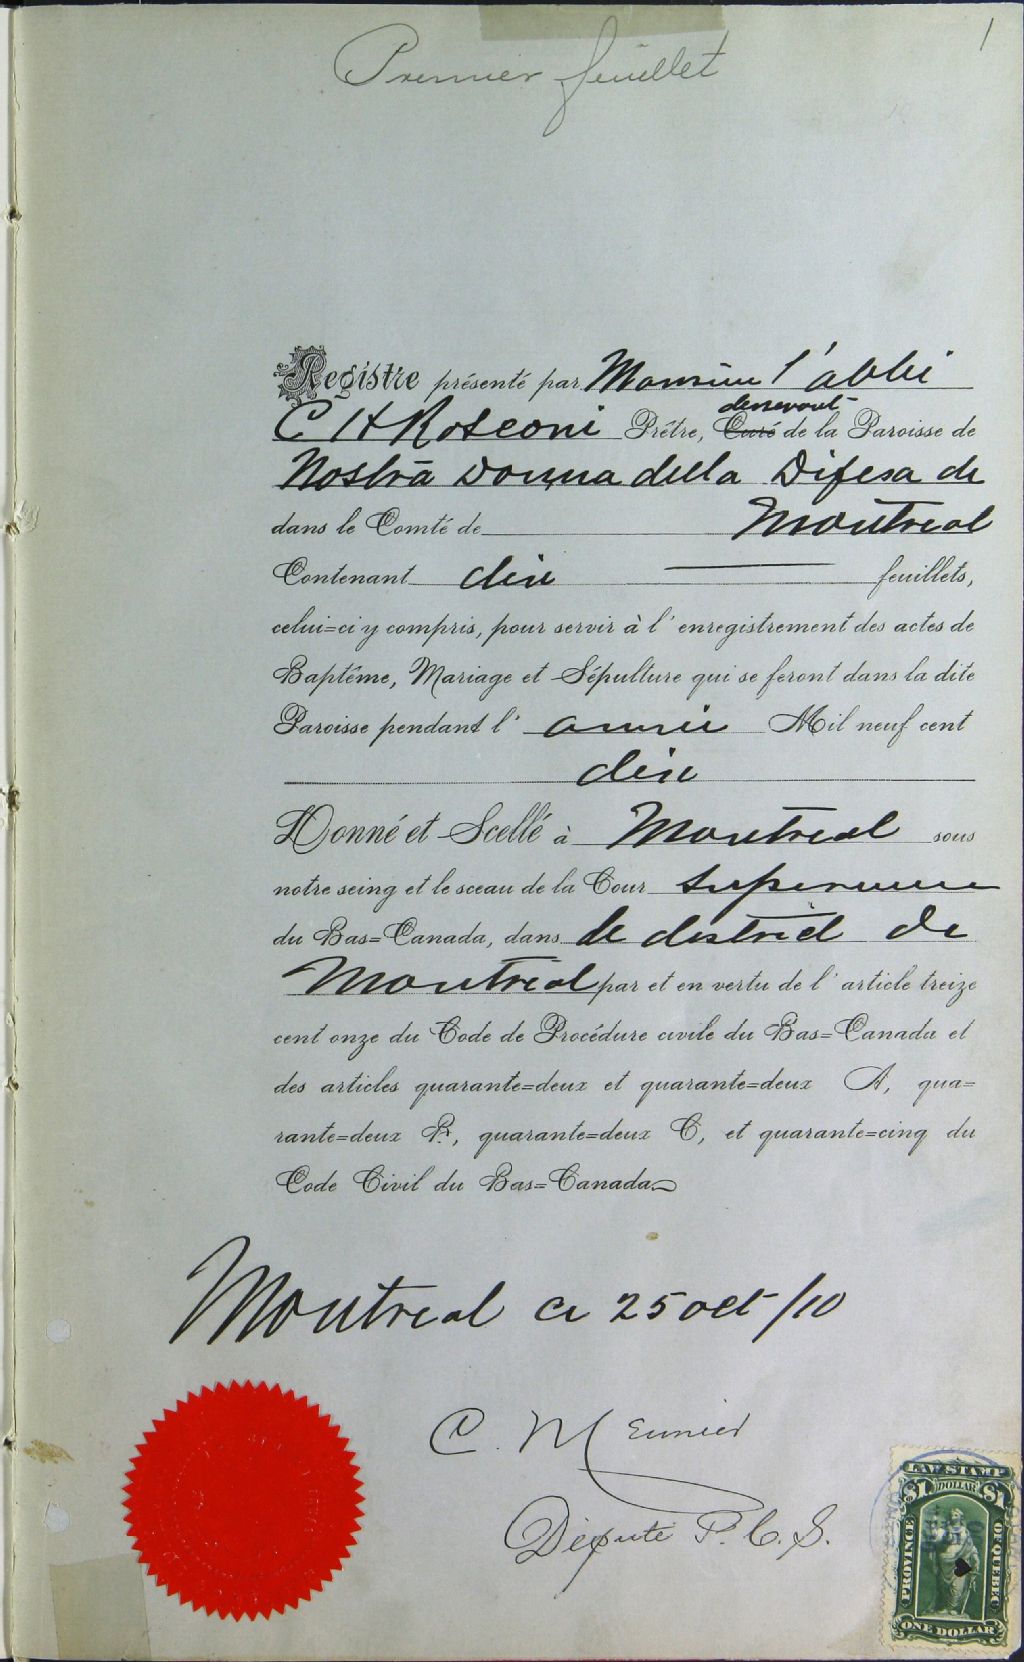 1
Premier feuillet
Registre présenté par Monsieur l'abbé
desservant
C H Rosconi Prêtre, Curé de la Paroisse de
Nostra Donna della Difesa de
dans le Comté de Montreal
Contenant dix feuillets,
celui=ci y compris, pour servir à l'enregistrement des actes de
Baptême, Mariage et Sépulture qui se feront dans la dite
Paroisse pendant l'année Mil neuf cent
dix
Donné et Scellé à Montreal sous
notre seing et le sceau de la Cour Superieure
du Bas=Canada, dans le district de
Montreal par et en vertu de l'article treize
cent onze du Code de Procédure civile du Bas=Canada et
des articles quarante=deux et quarante=deux A, qua=
rante=deux B, quarante=deux C, et quarante=cinq du
Code Civil du Bas=Canada.
Montreal ce 25 oct /10
C. Meunier
Député P. C. S.
LAW STAMP
$1 DOLLAR $1
PROVINCE OF QUEBEC
ONE DOLLAR